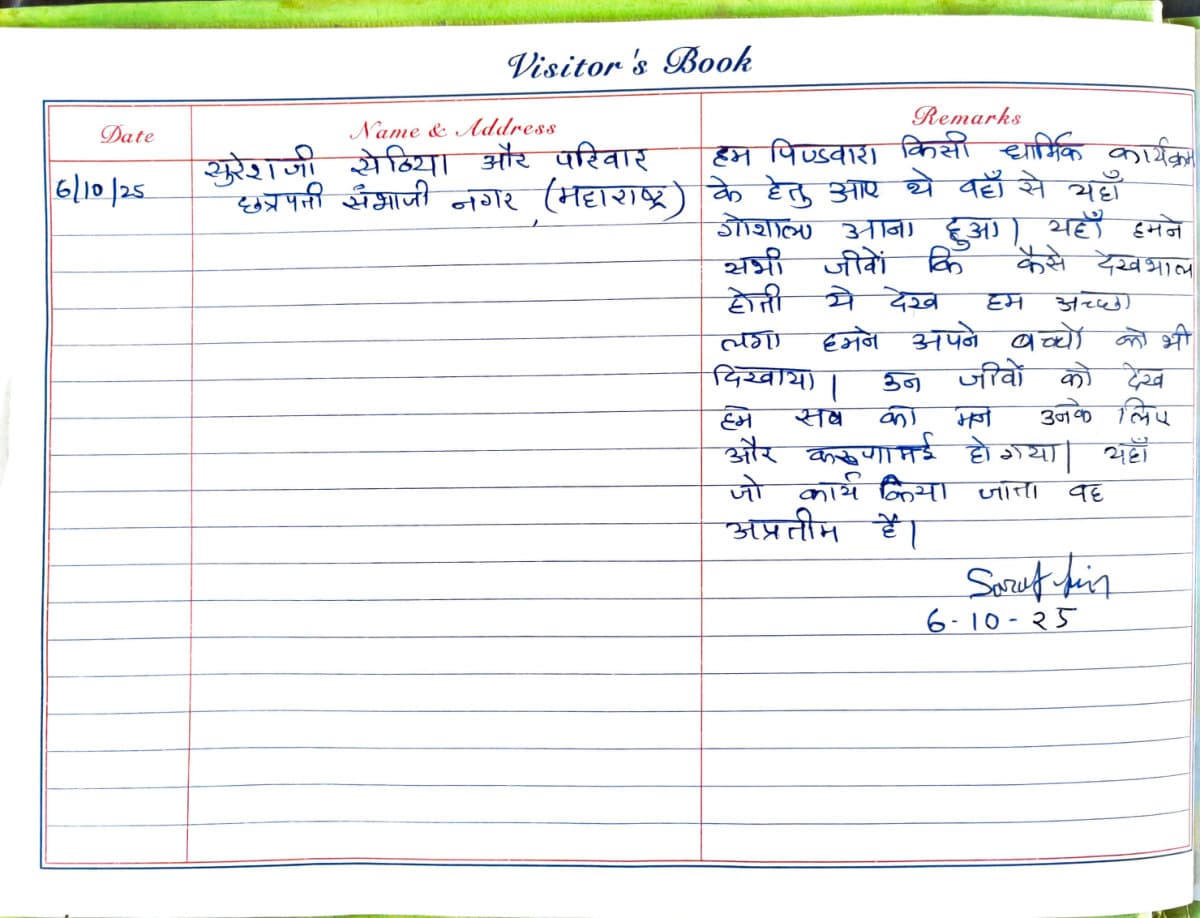 Visitor's Book
Date Name & Address Remarks
6/10/25
सुरेशजी सेठिया और परिवार
छत्रपती संभाजी नगर, (महाराष्ट्र)
हम पिण्डवारा किसी धार्मिक कार्यक्रम
के हेतु आए थे वहाँ से यहाँ
गोशाला आना हुआ। यहाँ हमने
सभी जीवों कि कैसे देखभाल
होती ये देख हम अच्छा
लगा हमने अपने बच्चों को भी
दिखाया। उन जीवों को देख
हम सब का मन उनके लिए
और करुणामई हो गया। यहाँ
जो कार्य किया जाता वह
अप्रतीम है।
6-10-25